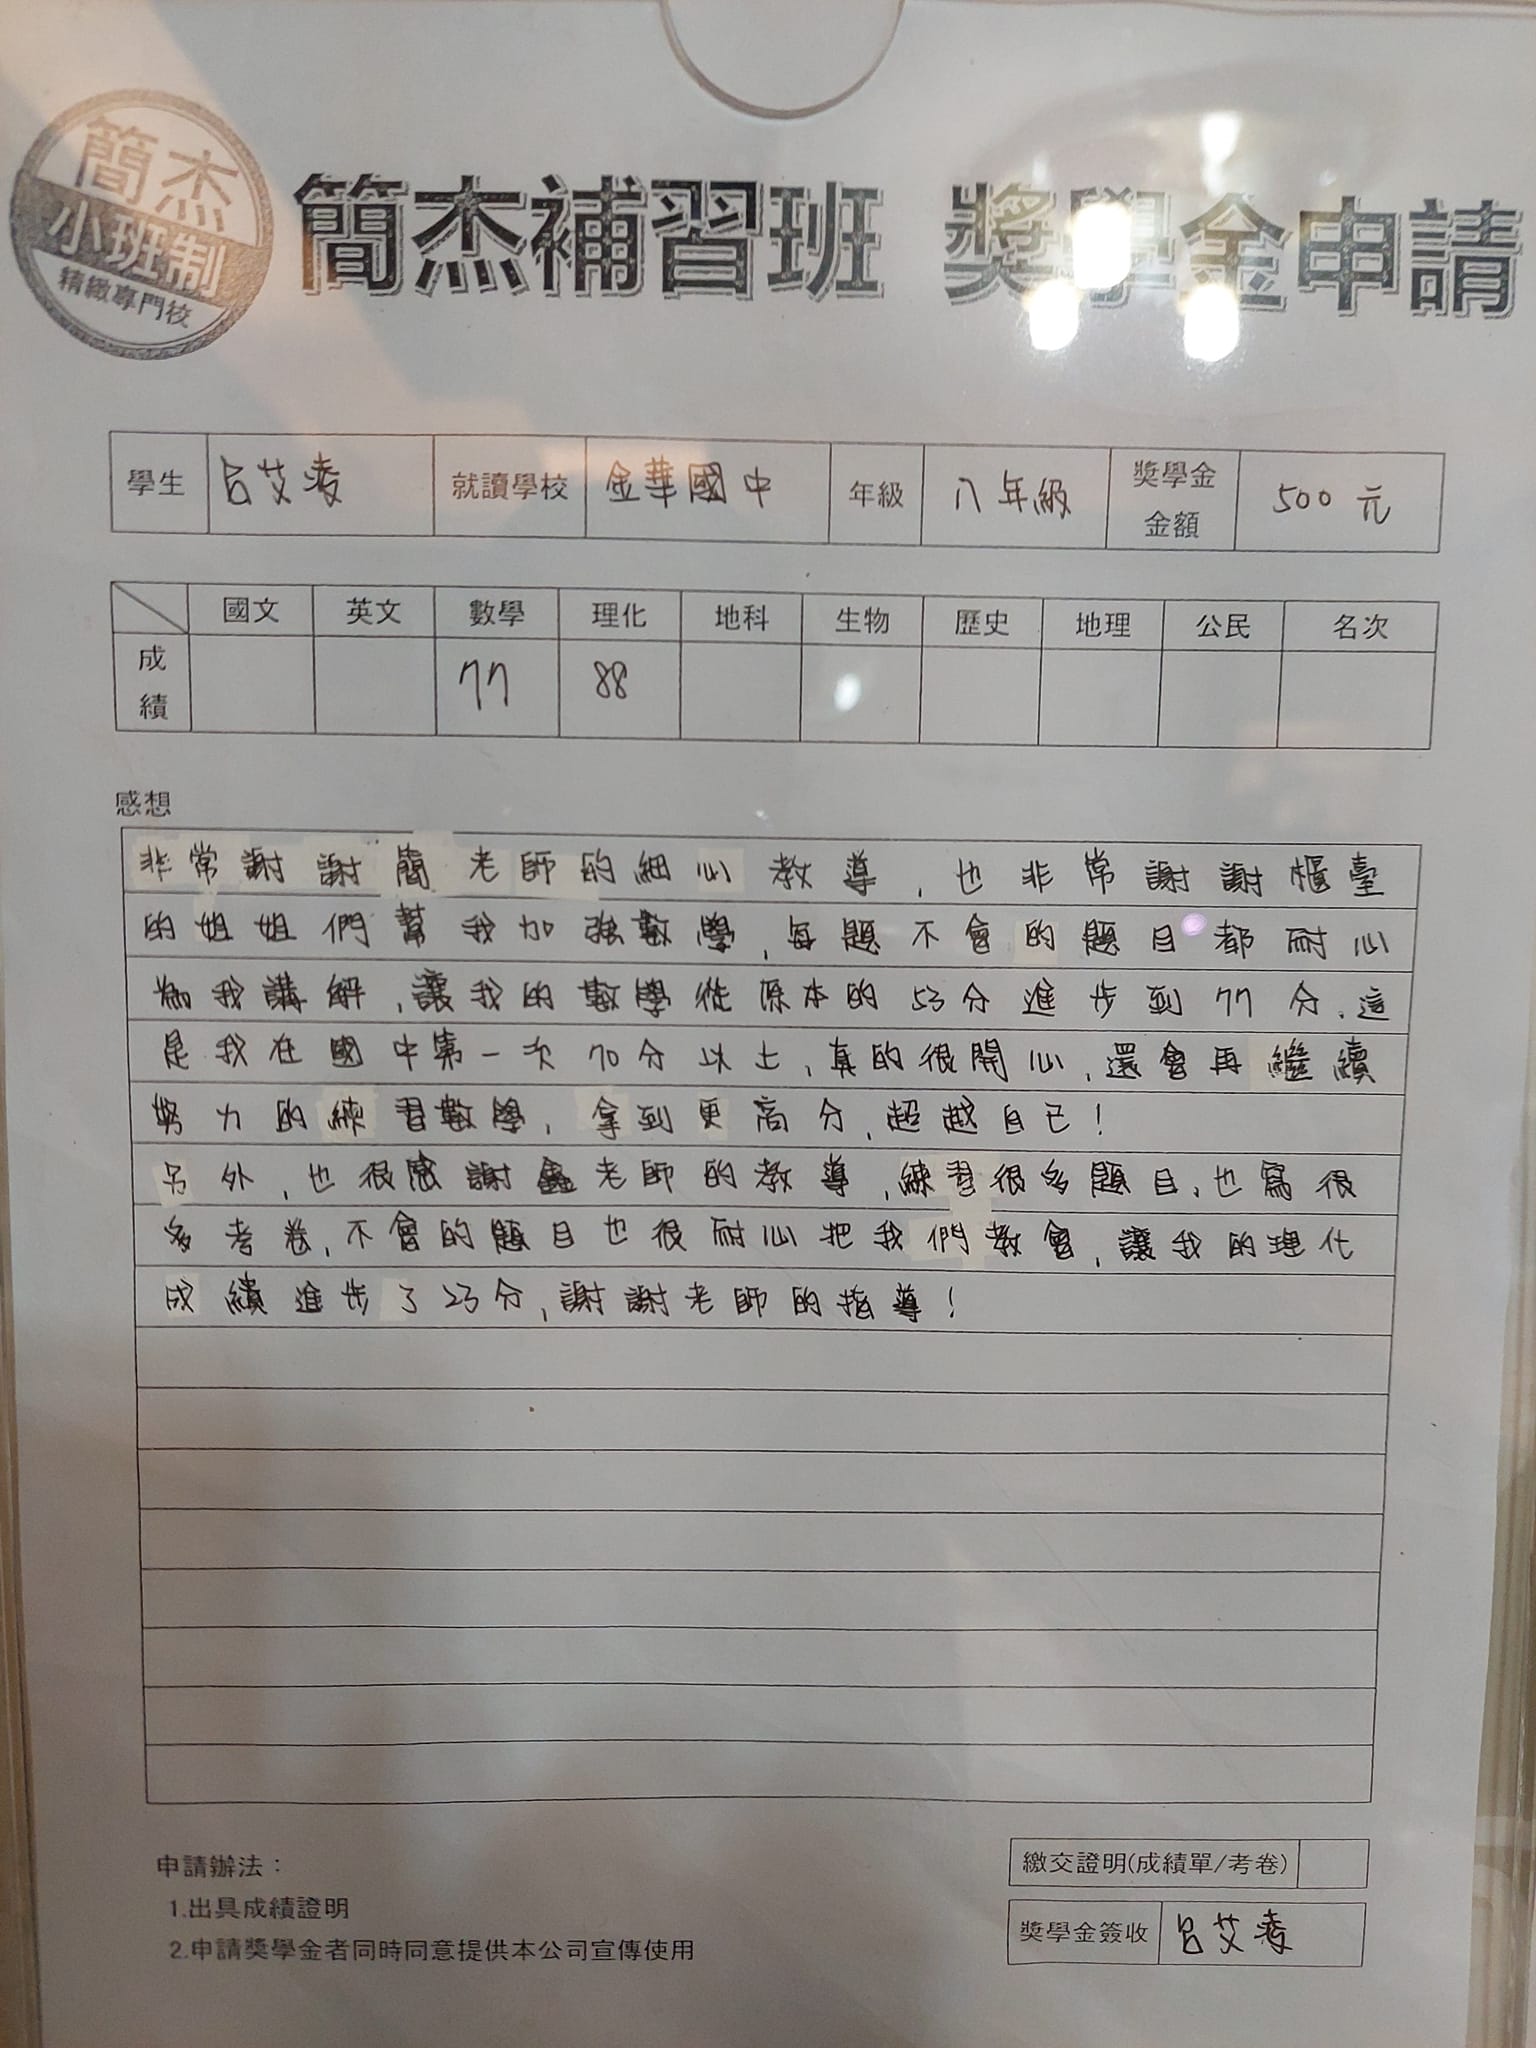 簡杰
小班制
精緻專門校
簡杰補習班 獎學金申請
學生 呂艾凌 就讀學校 金華國中 年級 八年級 獎學金金額 500元
國文 英文 數學 理化 地科 生物 歷史 地理 公民 名次
成績 77 88
感想
非常謝謝簡老師的細心教導,也非常謝謝櫃臺
的姐姐們幫我加強數學,每題不會的題目都耐心
為我講解,讓我的數學從原本的53分進步到77分,這
是我在國中第一次70分以上,真的很開心,還會再繼續
努力的練習數學,拿到更高分,超越自己!
另外,也很感謝鑫老師的教導,練習很多題目,也寫很
多考卷,不會的題目也很耐心把我們教會,讓我的理化
成績進步了23分,謝謝老師的指導!
申請辦法:
1.出具成績證明
2.申請獎學金者同時同意提供本公司宣傳使用
繳交證明(成績單/考卷)
獎學金簽收 呂艾凌